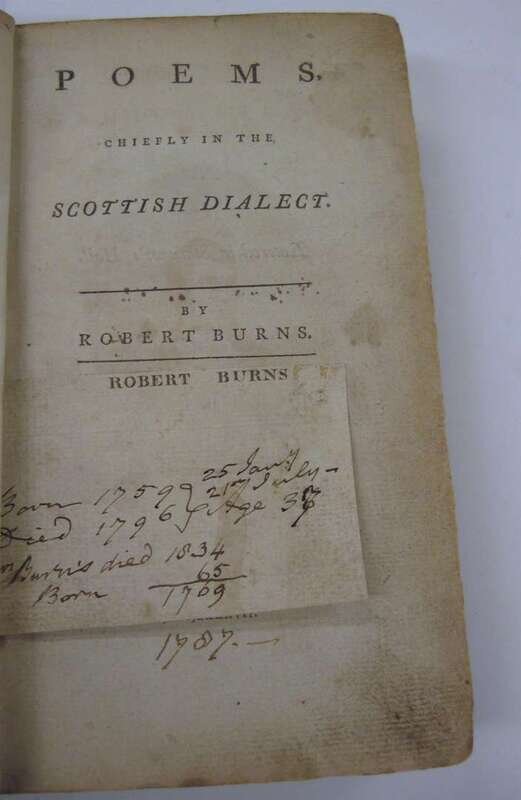 POEMS.
CHIEFLY IN THE
SCOTTISH DIALECT.
BY
ROBERT BURNS.
ROBERT BURNS
25 Jany
Born 1759 } 21st July—
Died 1796 } Age 37
Burns died 1834
65
Born 1769
1787.—